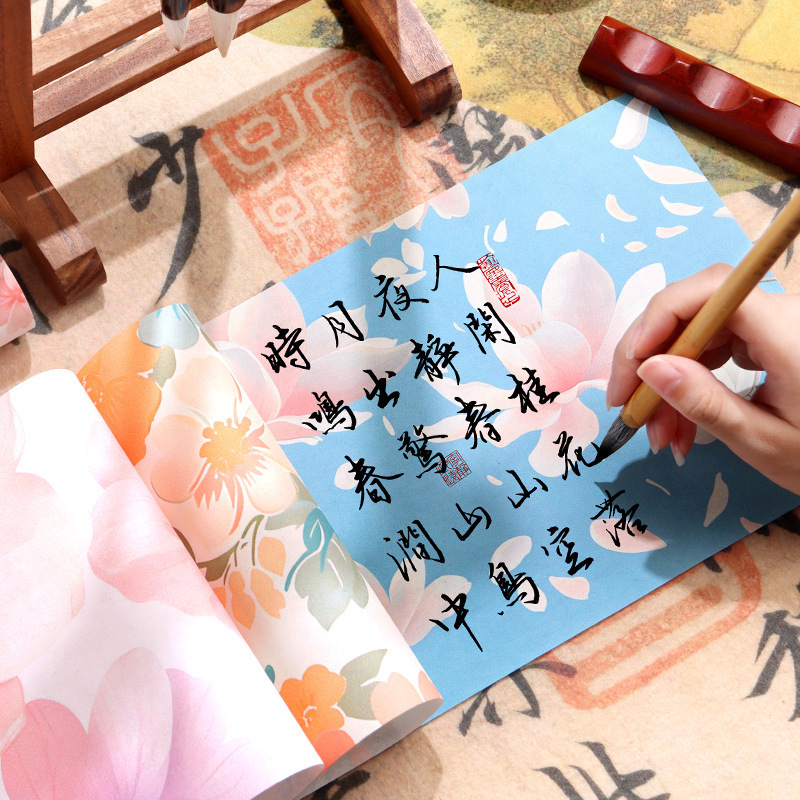 人閑桂花落
夜靜春山空
月出驚山鳥
時鳴春澗中
少